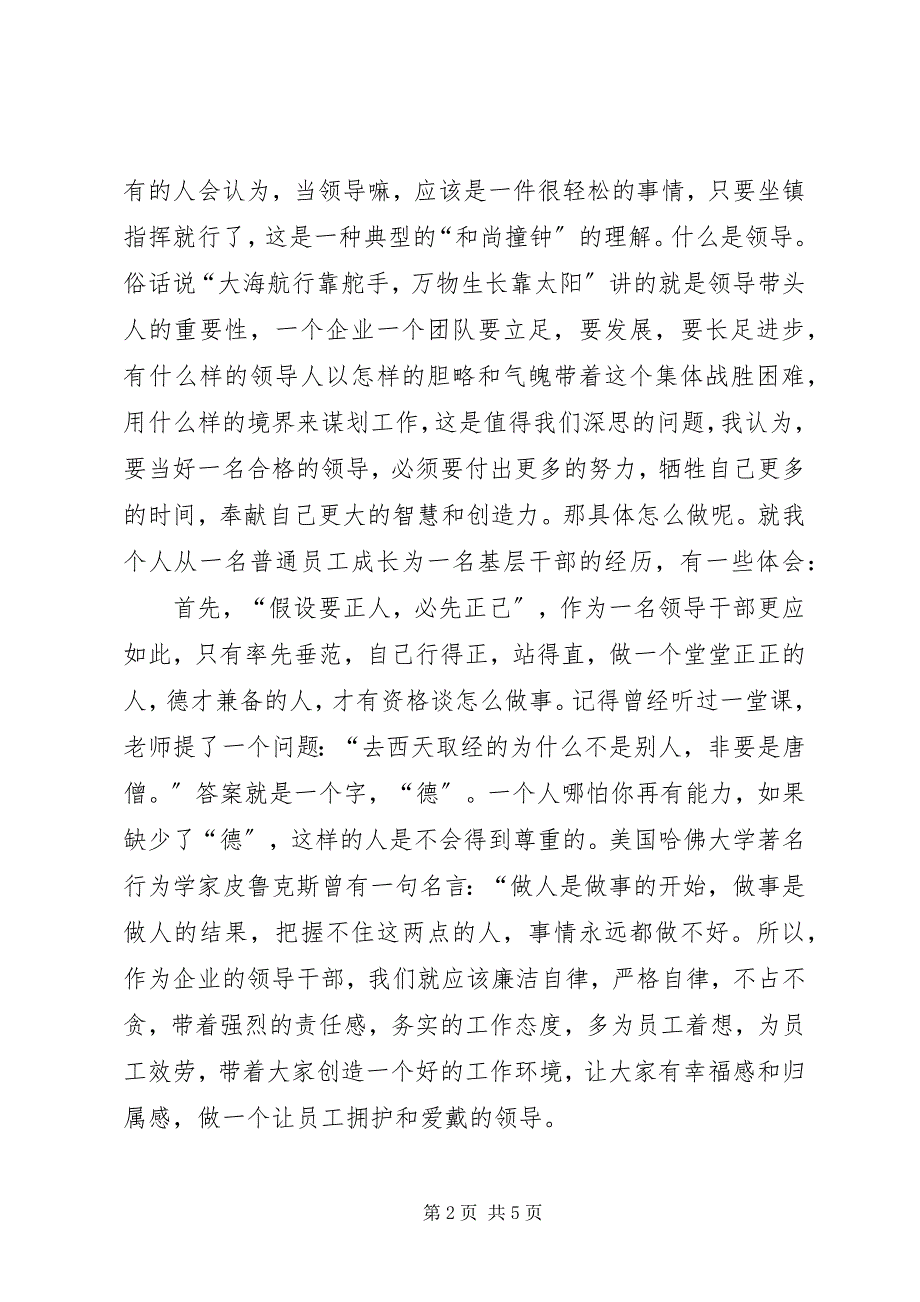 有的人会认为，当领导嘛，应该是一件很轻松的事情，只要坐镇
指挥就行了，这是一种典型的“和尚撞钟〞的理解。什么是领导。
俗话说“大海航行靠舵手，万物生长靠太阳〞讲的就是领导带头
人的重要性，一个企业一个团队要立足，要发展，要长足进步，
有什么样的领导人以怎样的胆略和气魄带着这个集体战胜困难，
用什么样的境界来谋划工作，这是值得我们深思的问题，我认为，
要当好一名合格的领导，必须要付出更多的努力，牺牲自己更多
的时间，奉献自己更大的智慧和创造力。那具体怎么做呢。就我
个人从一名普通员工成长为一名基层干部的经历，有一些体会：
首先，“假设要正人，必先正己〞，作为一名领导干部更应
如此，只有率先垂范，自己行得正，站得直，做一个堂堂正正的
人，德才兼备的人，才有资格谈怎么做事。记得曾经听过一堂课，
老师提了一个问题：“去西天取经的为什么不是别人，非要是唐
僧。〞答案就是一个字，“德〞。一个人哪怕你再有能力，如果
缺少了“德〞，这样的人是不会得到尊重的。美国哈佛大学著名
行为学家皮鲁克斯曾有一句名言：“做人是做事的开始，做事是
做人的结果，把握不住这两点的人，事情永远都做不好。所以，
作为企业的领导干部，我们就应该廉洁自律，严格自律，不占不
贪，带着强烈的责任感，务实的工作态度，多为员工着想，为员
工效劳，带着大家创造一个好的工作环境，让大家有幸福感和归
属感，做一个让员工拥护和爱戴的领导。
第2页 共5页